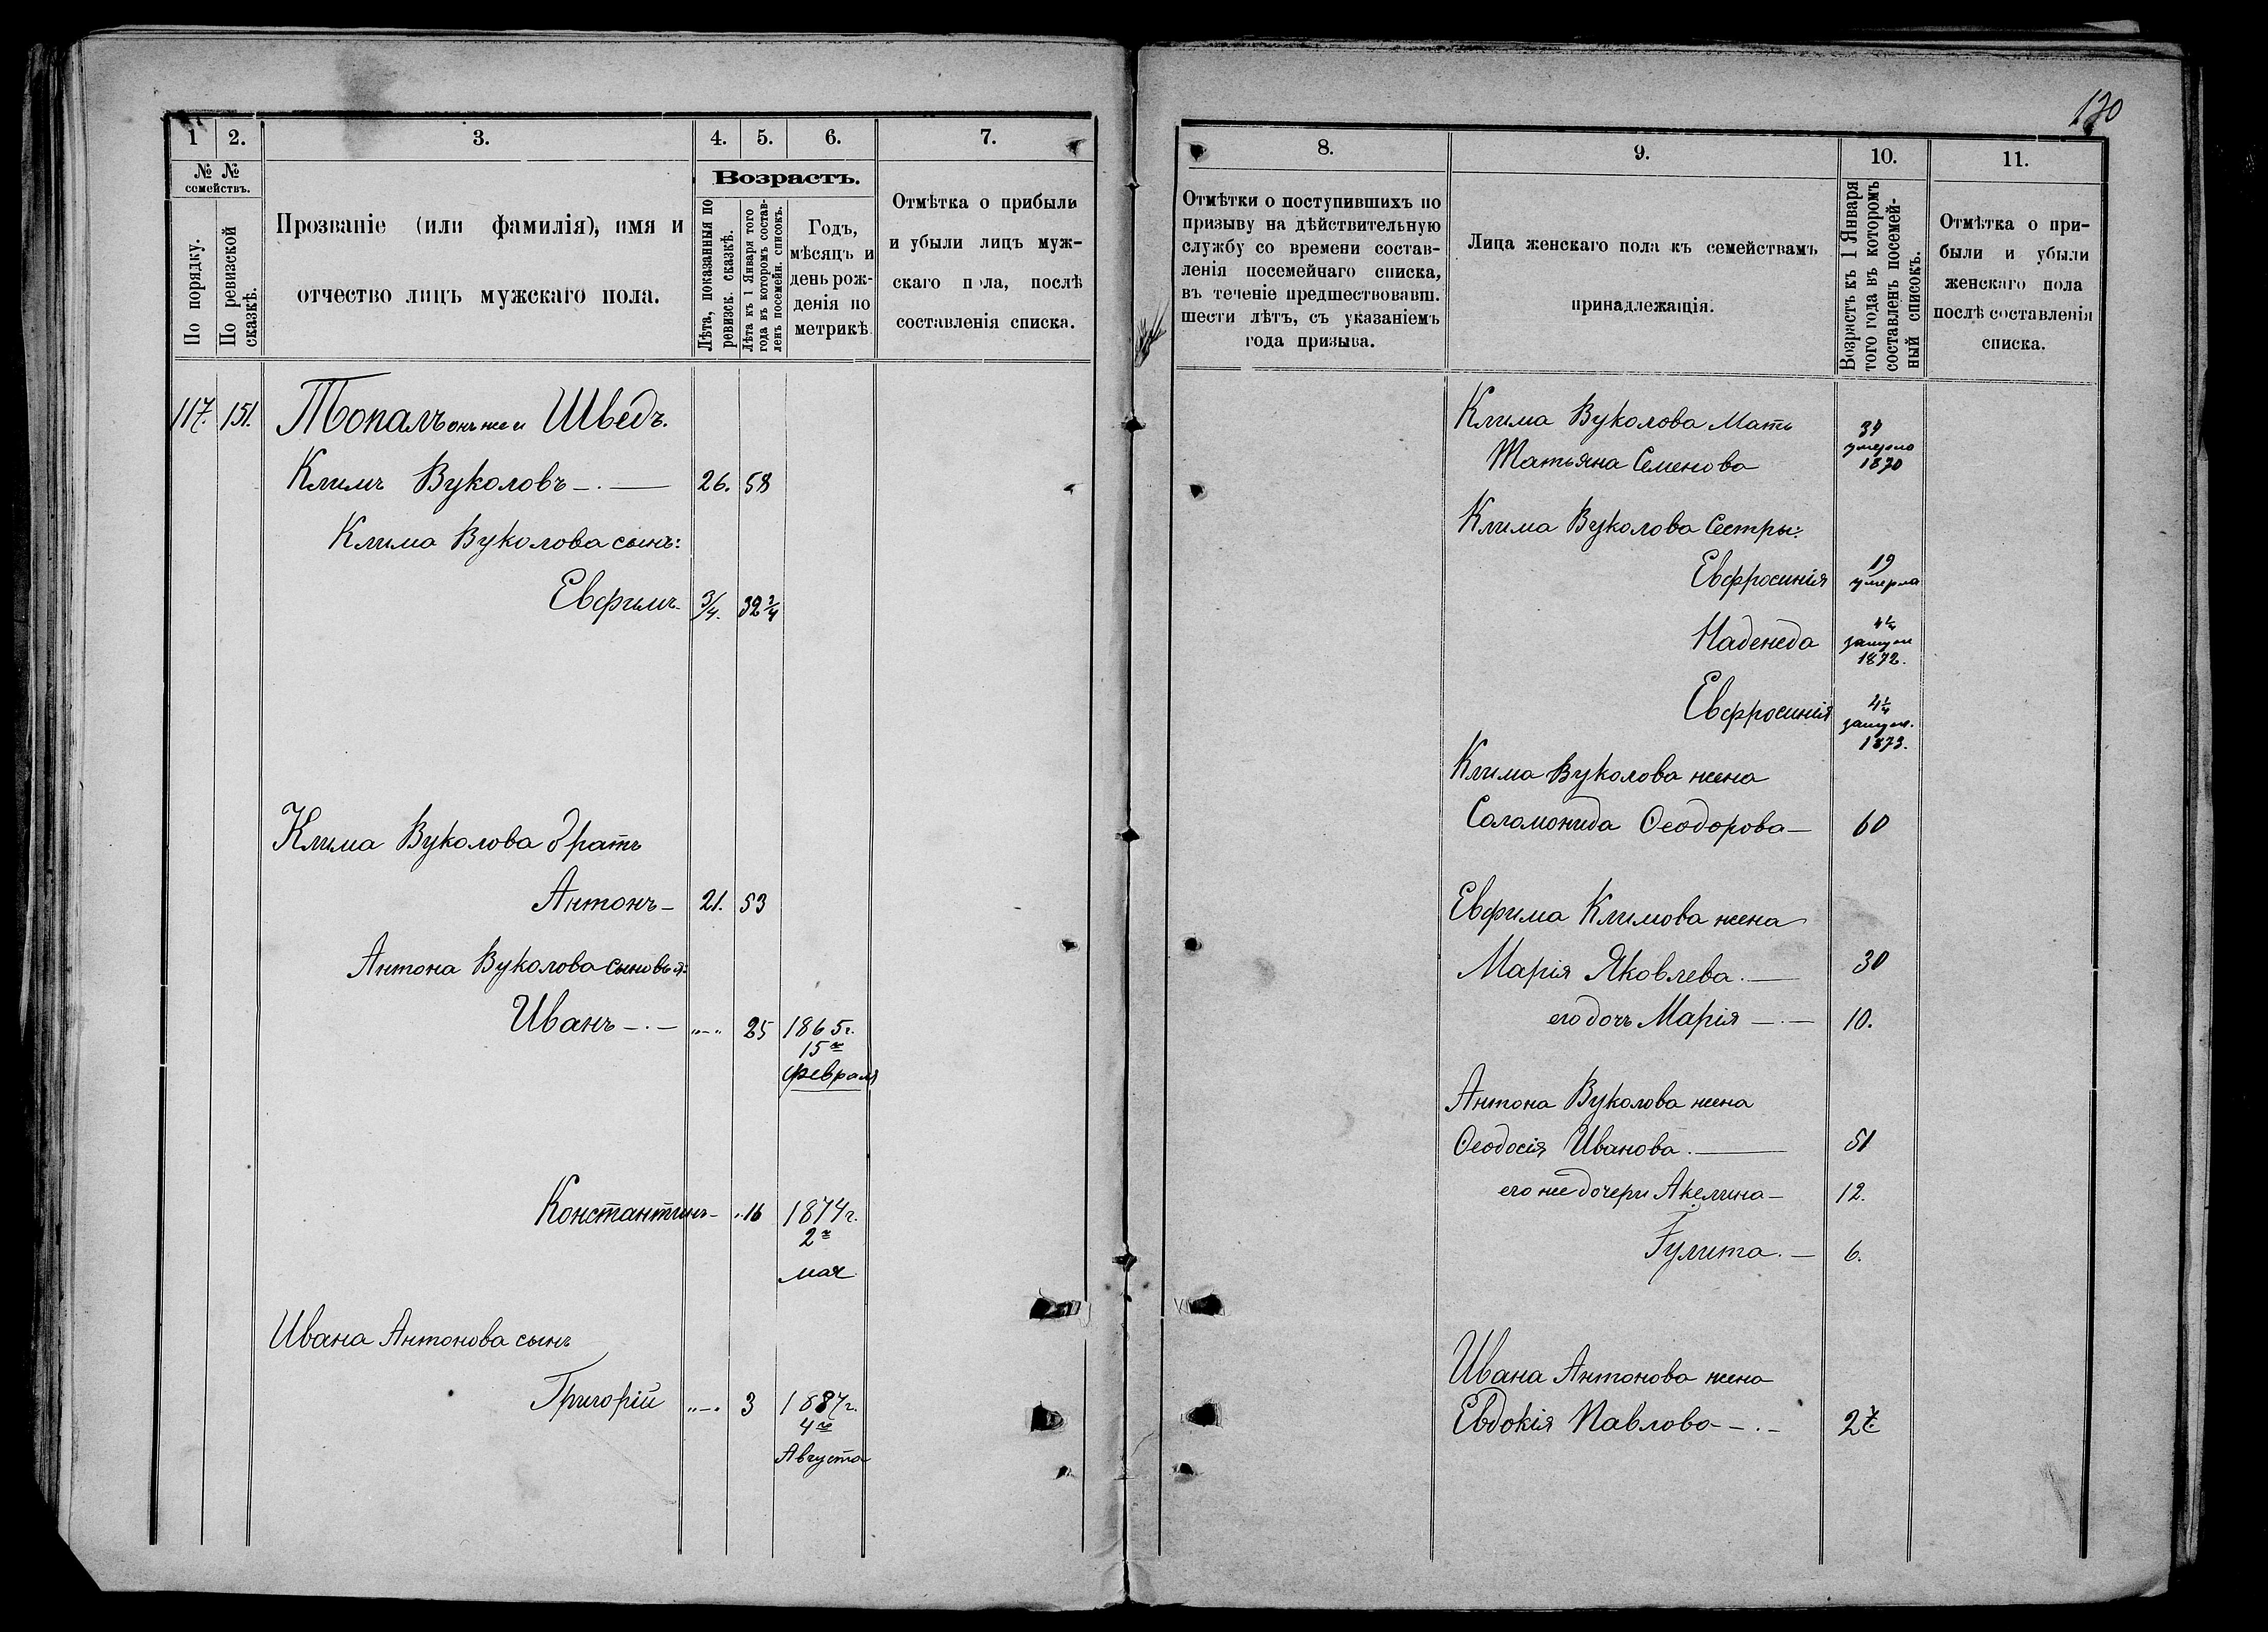 130
1
2.
3.
4.
5.
6.
7.
№ №
семействъ.
По порядку.
По ревизской
сказкѣ.
Прозваніе (или фамилія), имя и
отчество лицъ мужскаго пола.
Возрастъ.
Лѣта, показанныя по
ревизск. сказкѣ.
Лѣта къ 1 Января того
года въ которомъ состав-
ленъ посемейн. списокъ.
Годъ,
мѣсяцъ и
день рож-
денія по
метрикѣ
Отмѣтка о прибыли
и убыли лицъ муж-
скаго пола, послѣ
составленія списка.
117. 151. Топалъ онъ же и Шведъ.
Климъ Вуколовъ 26. 58
Клима Вуколова сынъ:
Евфимъ 3/4. 32 3/4
Клима Вуколова братъ
Антонъ 21. 53
Антона Вуколова сыновья:
Иванъ 25 1865 г.
15го
февраля
Константинъ 16 1874 г.
2го
мая
Ивана Антонова сынъ
Григорій 3 1887 г.
4го
Августа
8.
9.
10.
11.
Отмѣтки о поступившихъ по
призыву на дѣйствительную
службу со времени состав-
ленія посемейнаго списка,
въ теченіе предшествовавш.
шести лѣтъ, съ указаніемъ
года призыва.
Лица женскаго пола къ семействамъ
принадлежащія.
Возрастъ къ 1 Января
того года въ которомъ
составленъ посемей-
ный списокъ.
Отмѣтка о при-
были и убыли
женскаго пола
послѣ составленія
списка.
Клима Вуколова Мать
Татьяна Семенова
умерла
1870
Клима Вуколова Сестры:
Евфросинія 19
умерла
Надежда
замуж
1872.
Евфросинія 4 1/4
замуж.
1873.
Клима Вуколова жена
Саломонида Ѳеодорова 60
Евфима Климова жена
Марія Яковлева. 30
его дочь Марія 10.
Антона Вуколова жена
Ѳеодосія Иванова. 51
его же дочери Акелина 12.
Гулита. 6.
Ивана Антонова жена
Евдокія Павлова 27.